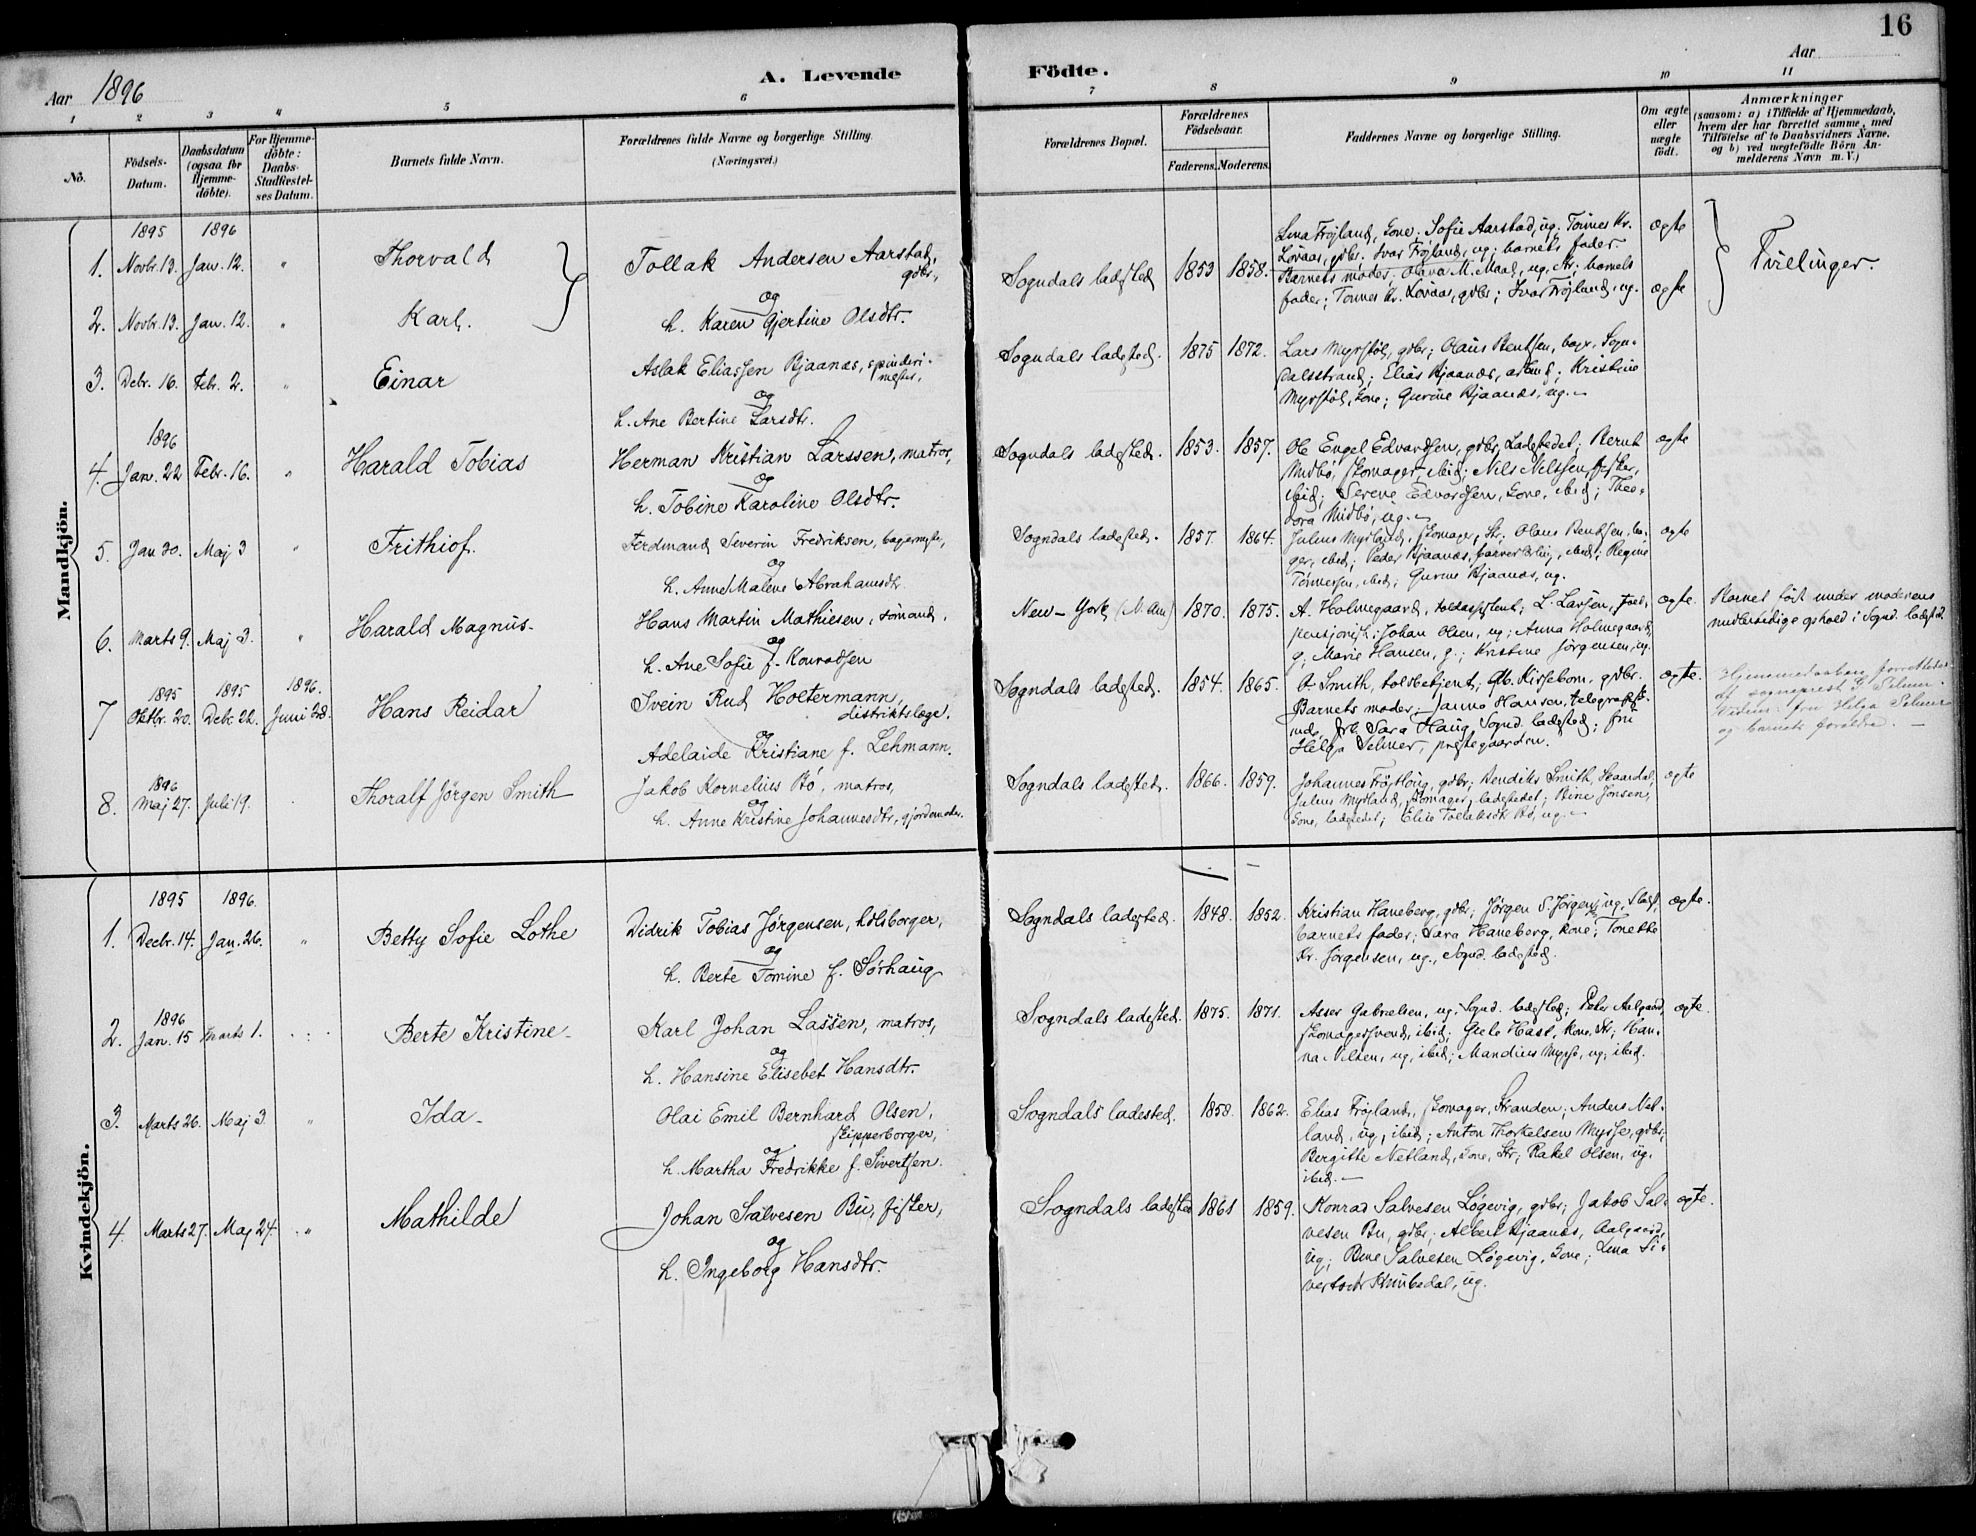 16
Aar 1896
A. Levende
Födte.
Aar
1 2 3 4 5 6 7 8 9 10 11
No.
Födsels-Datum.
Daabsdatum (ogsaa for Hjemme-döbte).
For Hjemme-döbte: Daabs-Stadfæstel-ses Datum.
Barnets fulde Navn.
Forældrenes fulde Navne og borgerlige Stilling.
(Næringsvei.)
Forældrenes Bopæl.
Forældrenes Födselsaar.
Faderens. Moderens.
Faddernes Navne og borgerlige Stilling.
Om ægte eller uægte født.
Anmærkninger
(saasom: a) i Tilfælde af Hjemmedaab,
hvem der har forrettet samme, med
Tilföielse af to Daabsvidners Navne.
og b) ved uægtefödte Börn An-
melderens Navn m. V.)
Mandkjön.
1895 1896
1. Novbr. 13. Jan. 12. " Thorvald
Tollak Andersen Aarstad, gdbr.,
og
2. Novbr. 13. Jan. 12. " Karl.
h. Karen Gjertine Olsdtr.
Sogndals ladested 1853 1858.
Lina Frøjland, kone; Sofie Aarstad, ug. Tönnes Kr.
Lövaas, gdbr. Ivar Frøjland, ug; barnets fader
Barnets moder, Olava M. Maal, ug. Str; barnets
fader; Tönnes Kr. Lövaas, gdbr; Ivar Frøjland, ug.
ægte
ægte
Tvillinger.
3. Debr. 16. Febr. 2. " Einar
Aslak Eliassen Bjaanæs, spinderi-
mester,
og
h. Ane Bertine Larsdtr.
Sogndals ladested. 1875 1872.
Lars Myrstøl, gdbr; Olaus Bentsen, bager, Sogn-
dalsstrand; Elias Bjaanæs, arbmd; Kristine
Myrstøl, kone; Gurine Bjaanæs, ug.
1896
4. Jan. 22 Febr. 16. " Harald Tobias
Herman Kristian Larssen, matros,
og
h. Tobine Karoline Olsdtr.
Sogndals ladested. 1853. 1857.
Ole Engel Edvardsen, gdbr, Ladestedet; Bernt
Midbø, skomager, ibid; Nils Nilssen, fisker,
ibid; Serene Edvardsen, kone, ibid; Theo-
dora Midbø, ug.
ægte
5. Jan 30. Maj 3 " Frithiof.
Ferdinand Severin Fredriksen, bagermester,
og
h. Anne Malene Abrahamsdtr
Sogndals ladested. 1857. 1864.
Julius Myrland, skomager, Str; Olaus Bentsen, ba-
ger, ibid; Peder Bjaanæs, farverlærling, ibid; Regine
Tönnessen, ibid; Gurine Bjaanæs, ug.
ægte
6. Marts 9. Maj 3. " Harald Magnus
Hans Martin Mathiesen, sömand,
og
h. Ane Sofie f. Konradsen
New-York (N. Am.) 1870. 1875.
A. Holmegaard, toldassistent; L. Larsen,
pensionist; Johan Olsen, ug; Anna Holmegaard,
g; Marie Hansen, g.; Kristine Jørgensen, ug.
ægte.
Barnet födt under moderens
midlertidige ophold i Sognd. ladested.
1895 1895 1896.
7 Oktbr. 20. Debr. 22. Juni 28. Hans Reidar
Svein Rud Holtermann,
distriktslæge.
og
Adelaide Kristiane f. Lehmann.
Sogndals ladested. 1854. 1865.
A. Smith, toldbetjent; Ab. Kirsebom, gdbr.
Barnets moder; Janna Hansen, telegrafist-
inde, frk. Sara Haug, Sognd. ladested; fru
Helga Selmer, prestegaarden.
ægte.
Hjemmedaaben forrettedes
af sogneprest S. Selmer.
Vidner: fru Helga Selmer
og barnets forældre.
1896
8. Maj 27. Juli 19. Thoralf Jørgen Smith
Jakob Kornelius Bö, matros,
og
h. Anne Kristine Johannesdtr, gjordemoder.
Sogndals ladested. 1866. 1859.
Johannes Frøtlöug, gdbr; Bendiks Smith, Skaardal;
Julius Myrland, skomager, ladestedet; Bine Jonsen,
kone, ladestedet; Elise Tollaksdtr Bö, ug.
ægte
Kvindekjön.
1895 1896.
1. Decbr. 14. Jan. 26. " Betty Sofie Lothe
Didrik Tobias Jørgensen, holsborger,
og
h. Berte Tomine f. Sørhaug
Sogndals ladested. 1848. 1852.
Kristian Haneberg, gdbr; Jørgen S. Jørgensen, ug,
barnets fader; Sara Haneberg, kone; Tonette
Kr. Jørgensen, ug., Sognd. ladested.
ægte.
1896
2. Jan. 15 Marts 1. Berte Kristine
Karl Johan Lassen, matros,
og
h. Hansine Elisebet Hansdtr.
Sogndals ladested. 1875. 1871.
Asser Gabrielsen, ug, Sognd. ladested; Peder Aalgaard,
skomagersvend, ibid; Gele Hasl, kone, Str; Han-
na Nilsen, ug, ibid; Mandius Mysse, ug, ibid.
ægte.
3. Marts 26. Maj 3 " Ida
Olai Emil Bernhard Olsen,
skipperborger,
og
h. Martha Fredrikke f. Sivertsen.
Sogndals ladested. 1858. 1862.
Elias Frøjland, skomager, Stranden; Anders Net-
land, ug, ibid; Anton Thorkelsen Mysse, gdbr;
Bergitte Netland, kone, Str; Rakel Olsen, ug,
ibid.
4. Marts 27. Maj 24. " Mathilde
Johan Salvesen Bu, fisker,
og
h. Ingeborg Hansdtr.
Sogndals ladested 1861 1859.
Konrad Salvesen Løgevig, gdbr; Jakob Sal-
vesen Bu, gdbr; Albert Bjaanæs, Aalgaard,
ug; Bine Salvesen Løgevig, kone; Lina Si-
vertsdtr Knubedal, ug.
ægte.